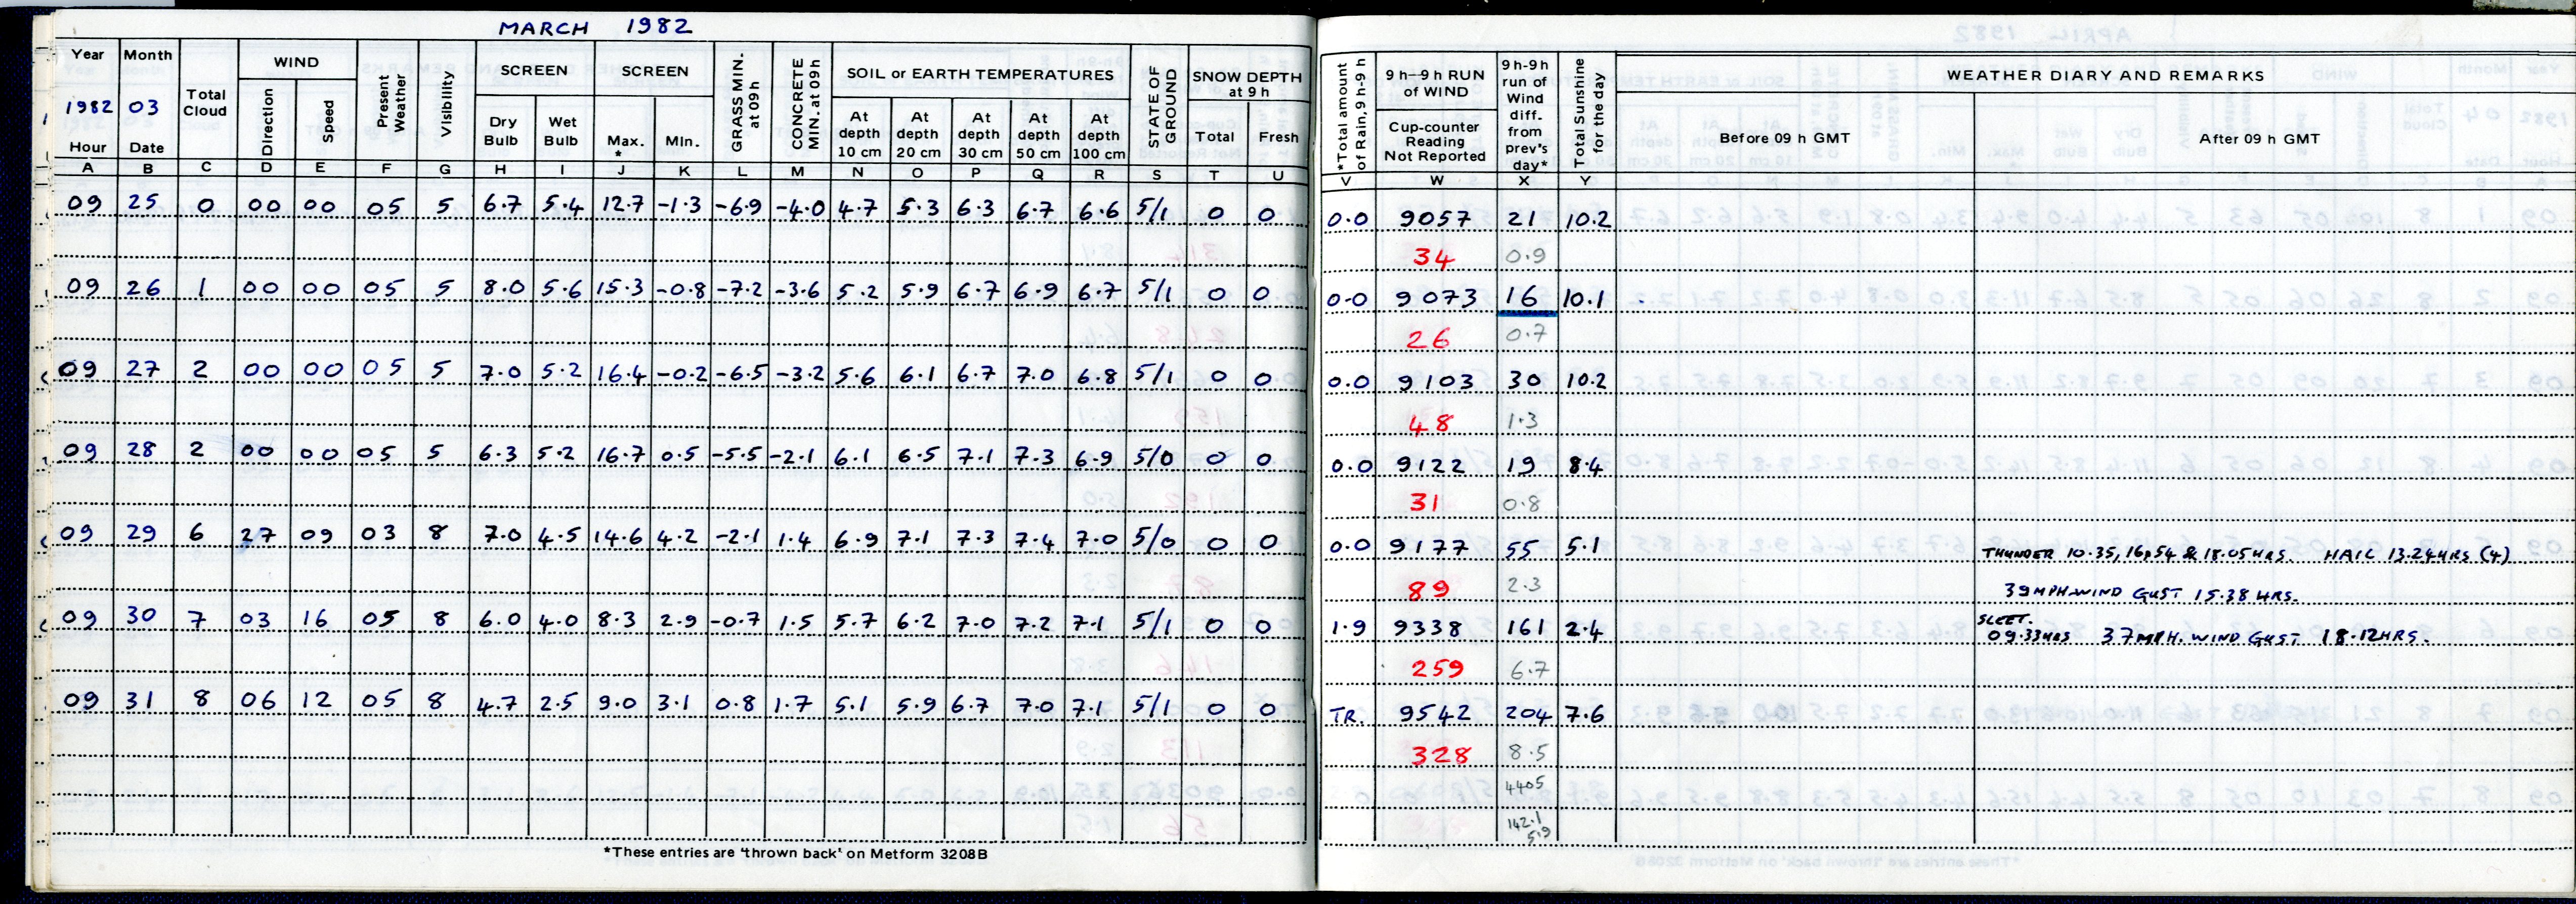 MARCH 1982
Year Month Total Cloud WIND Present Weather Visibility SCREEN SCREEN GRASS MIN. at 09h CONCRETE MIN. at 09h SOIL or EARTH TEMPERATURES STATE OF GROUND SNOW DEPTH at 9 h *Total amount of Rain, 9h-9 h 9 h—9 h RUN of WIND 9 h-9h run of Wind diff. from prev's day* Total Sunshine for the day WEATHER DIARY AND REMARKS
1982 03 Direction Speed Dry Bulb Wet Bulb Max. * Min. At depth 10 cm At depth 20 cm At depth 30 cm At depth 50 cm At depth 100 cm Total Fresh Cup-counter Reading Not Reported Before 09 h GMT After 09 h GMT
Hour Date
A B C D E F G H I J K L M N O P Q R S T U V W X Y
09 25 0 00 00 05 5 6.7 5.4 12.7 -1.3 -6.9 -4.0 4.7 5.3 6.3 6.7 6.6 5/1 0 0 0.0 9057 21 10.2
34 0.9
09 26 1 00 00 05 5 8.0 5.6 15.3 -0.8 -7.2 -3.6 5.2 5.9 6.7 6.9 6.7 5/1 0 0 0.0 9073 16 10.1
26 0.7
09 27 2 00 00 05 5 7.0 5.2 16.4 -0.2 -6.5 -3.2 5.6 6.1 6.7 7.0 6.8 5/1 0 0 0.0 9103 30 10.2
48 1.3
09 28 2 00 00 05 5 6.3 5.2 16.7 0.5 -5.5 -2.1 6.1 6.5 7.1 7.3 6.9 5/0 0 0 0.0 9122 19 8.4
31 0.8
09 29 6 27 09 03 8 7.0 4.5 14.6 4.2 -2.1 1.4 6.9 7.1 7.3 7.4 7.0 5/0 0 0 0.0 9177 55 5.1 THUNDER 10.35, 16.54 & 18.05 HRS. HAIL 13.24 HRS (4)
89 2.3 39 MPH WIND GUST 15.38 HRS.
09 30 7 03 16 05 8 6.0 4.0 8.3 2.9 -0.7 1.5 5.7 6.2 7.0 7.2 7.1 5/1 0 0 1.9 9338 161 2.4 SLEET. 09.33 HRS 37 MPH. WIND GUST 18.12 HRS.
259 6.7
09 31 8 06 12 05 8 4.7 2.5 9.0 3.1 0.8 1.7 5.1 5.9 6.7 7.0 7.1 5/1 0 0 TR. 9542 204 7.6
328 8.5
4405
142.1
5.9
*These entries are 'thrown back' on Metform 3208B